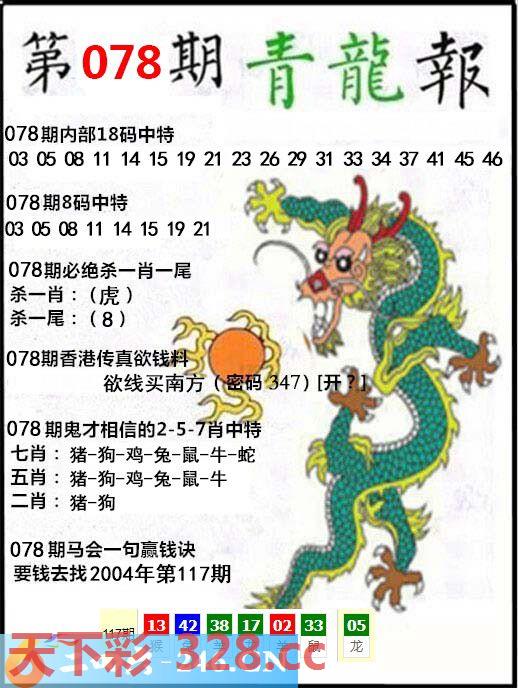 第078期青龍報
078期内部18码中特
03 05 08 11 14 15 19 21 23 26 29 31 33 34 37 41 45 46
078期8码中特
03 05 08 11 14 15 19 21
078期必绝杀一肖一尾
杀一肖：（虎）
杀一尾：（8）
078期香港传真欲钱料
欲线买南方（密码 347）[开？]
078期鬼才相信的2-5-7肖中特
七肖：猪-狗-鸡-兔-鼠-牛-蛇
五肖：猪-狗-鸡-兔-鼠-牛
二肖：猪-狗
078期马会一句赢钱诀
要钱去找2004年第117期
117期 13 42 38 17 02 33 05
猴 鼠 龙
天下彩-328.cc